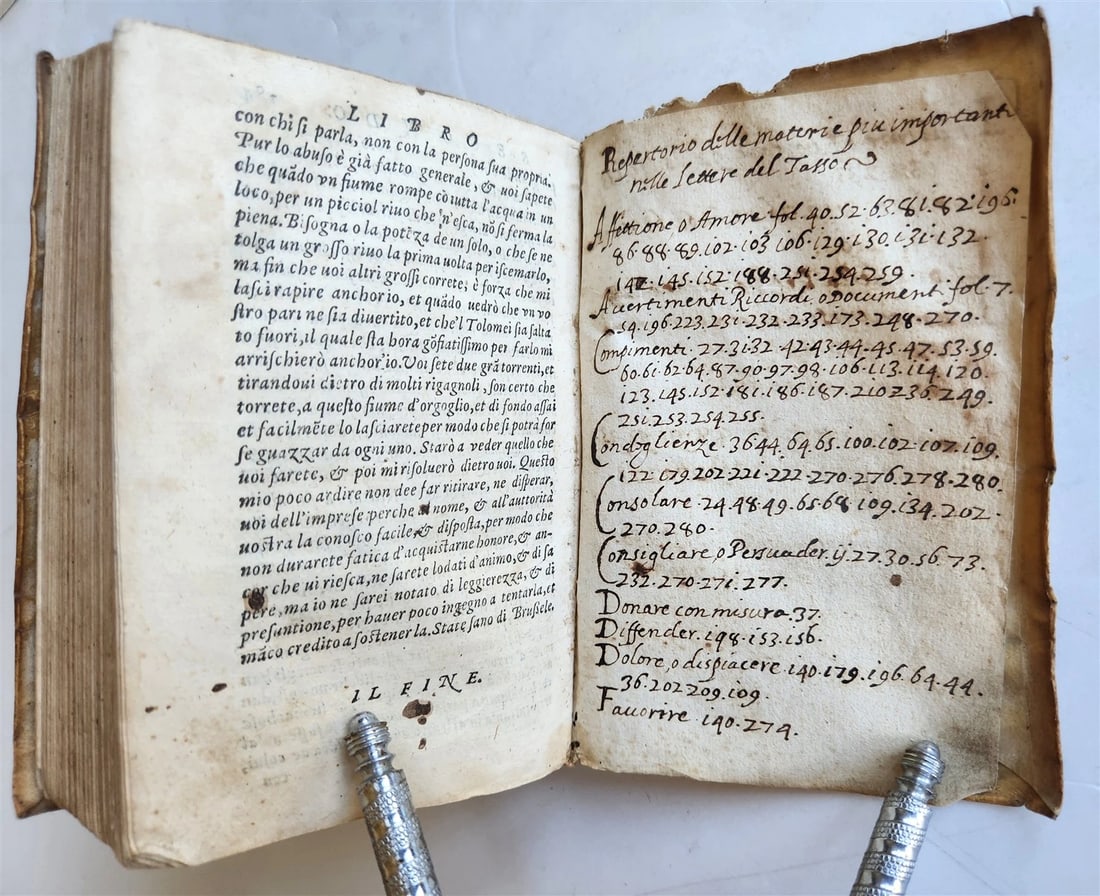 LIBRO
con chi si parla, non con la persona sua propria.
Pur lo abuso è già fatto generale, & uoi sapete
che quãdo vn fiume rompe cõ tutta l'acqua in un
loco, per un picciol riuo che n'esca, nõ si ferma la
piena. Bisogna o la potẽza de un solo, o che se ne
tolga un grosso riuo la prima uolta per iscemarlo,
ma fin che uoi altri grossi correte, è forza che mi
lasci rapire anchor io, et quãdo vedrò che vn vo
stro pari ne sia divertito, et che'l Tolomei sia salta
to fuori, il quale sta hora gõfiatissimo per farlo mi
arrischierò anchor io. Voi sete due grã torrenti, et
tirandoui dietro di molti rigagnoli, son certo che
torrete, a questo fiume d'orgoglio, et di fondo assai
et facilmẽte lo lasciarete per modo che si potrà for
se guazzar da ogni uno. Starò a veder quello che
uoi farete, & poi mi risoluerò dietro uoi. Questo
mio poco ardire non dee far ritirare, ne disperar,
uoi dell'imprese perche al nome, & all'auttorità
uostra la conosco facile, & disposta, per modo che
non durarete fatica d'acquistarne honore, & an-
cor che ui riesca, ne sarete lodati d'animo, & di sa
pere, ma io ne sarei notato di leggierezza, & di
presuntione, per hauer poco ingegno a tentarla, et
mãco credito a sostenerla. State sano di Brusiele.
IL FINE.
Repertorio delle materie piu importanti
nelle Lettere del Tasso
Affettione o Amore fol. 40. 52. 63. 81. 82. 196.
86. 88. 89. 102. 103 106. 129. 130. 131. 132.
142. 145. 152. 188. 251. 254. 259.
Avertimenti Riccordi, o Document. fol. 7.
54. 196. 223. 231. 232. 233. 173. 248. 270.
Compimenti. 27. 31. 32. 42. 43. 44. 45. 47. 53. 59.
60. 61. 62. 64. 87. 90. 97. 98. 106. 113. 114. 120.
123. 145. 152. 181. 186. 187. 210 236. 249.
251. 253. 254. 255.
Condoglienze. 36 44. 64. 65. 100. 102. 107. 109.
122. 179. 202. 221. 222. 270. 276. 278. 280.
Consolare. 24. 48. 49. 65. 68. 109. 134. 202.
270. 280.
Consigliare, o Persuader. ij. 27. 30. 56. 73.
232. 270. 271. 277.
Donare con misura. 37.
Diffender. 198. 153. 156.
Dolore, o dispiacere. 140. 179. 196. 64. 44.
36. 202 209. 109.
Fauorire. 140. 274.